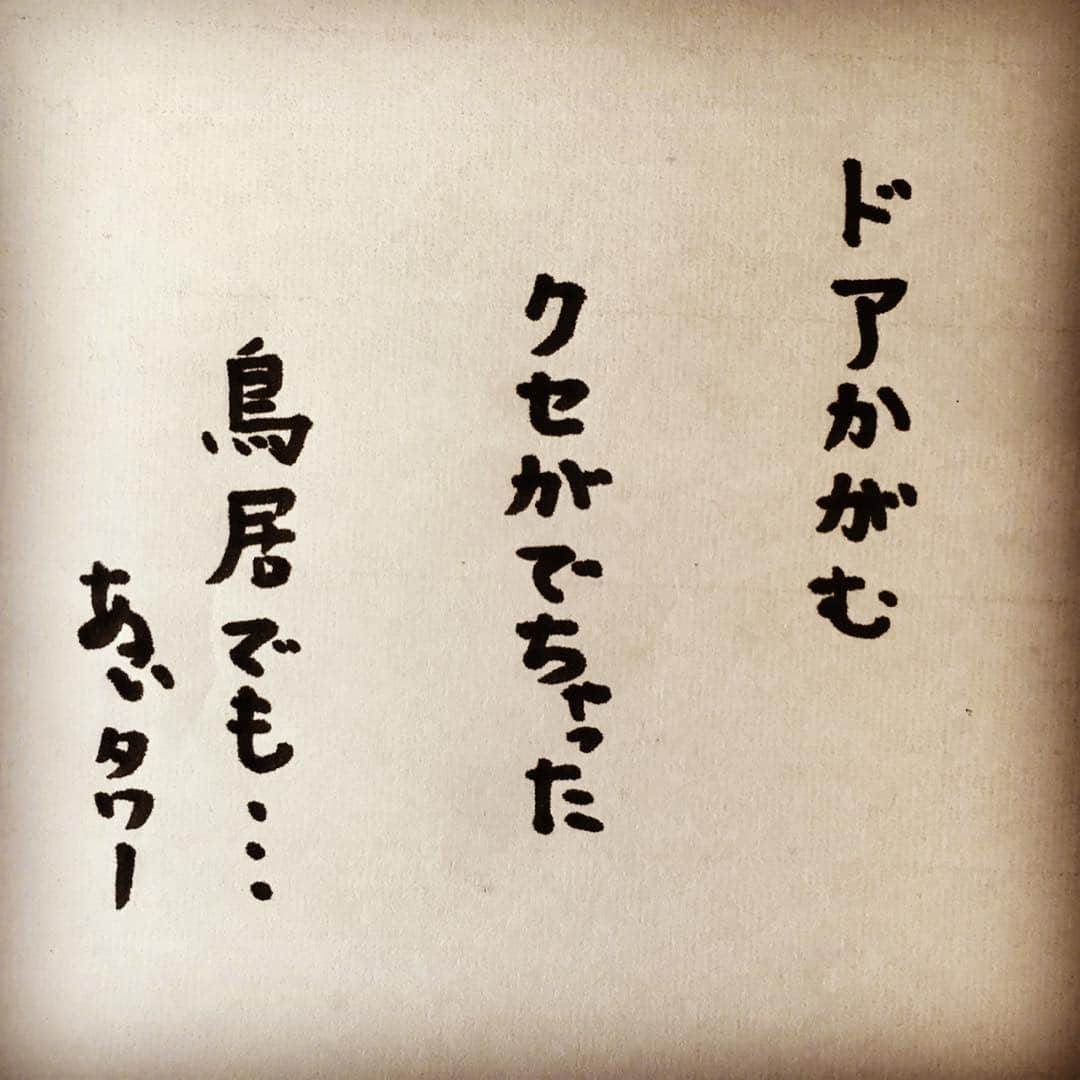 ドアかがむ
クセがでちゃった
鳥居でも…
あぃタワー